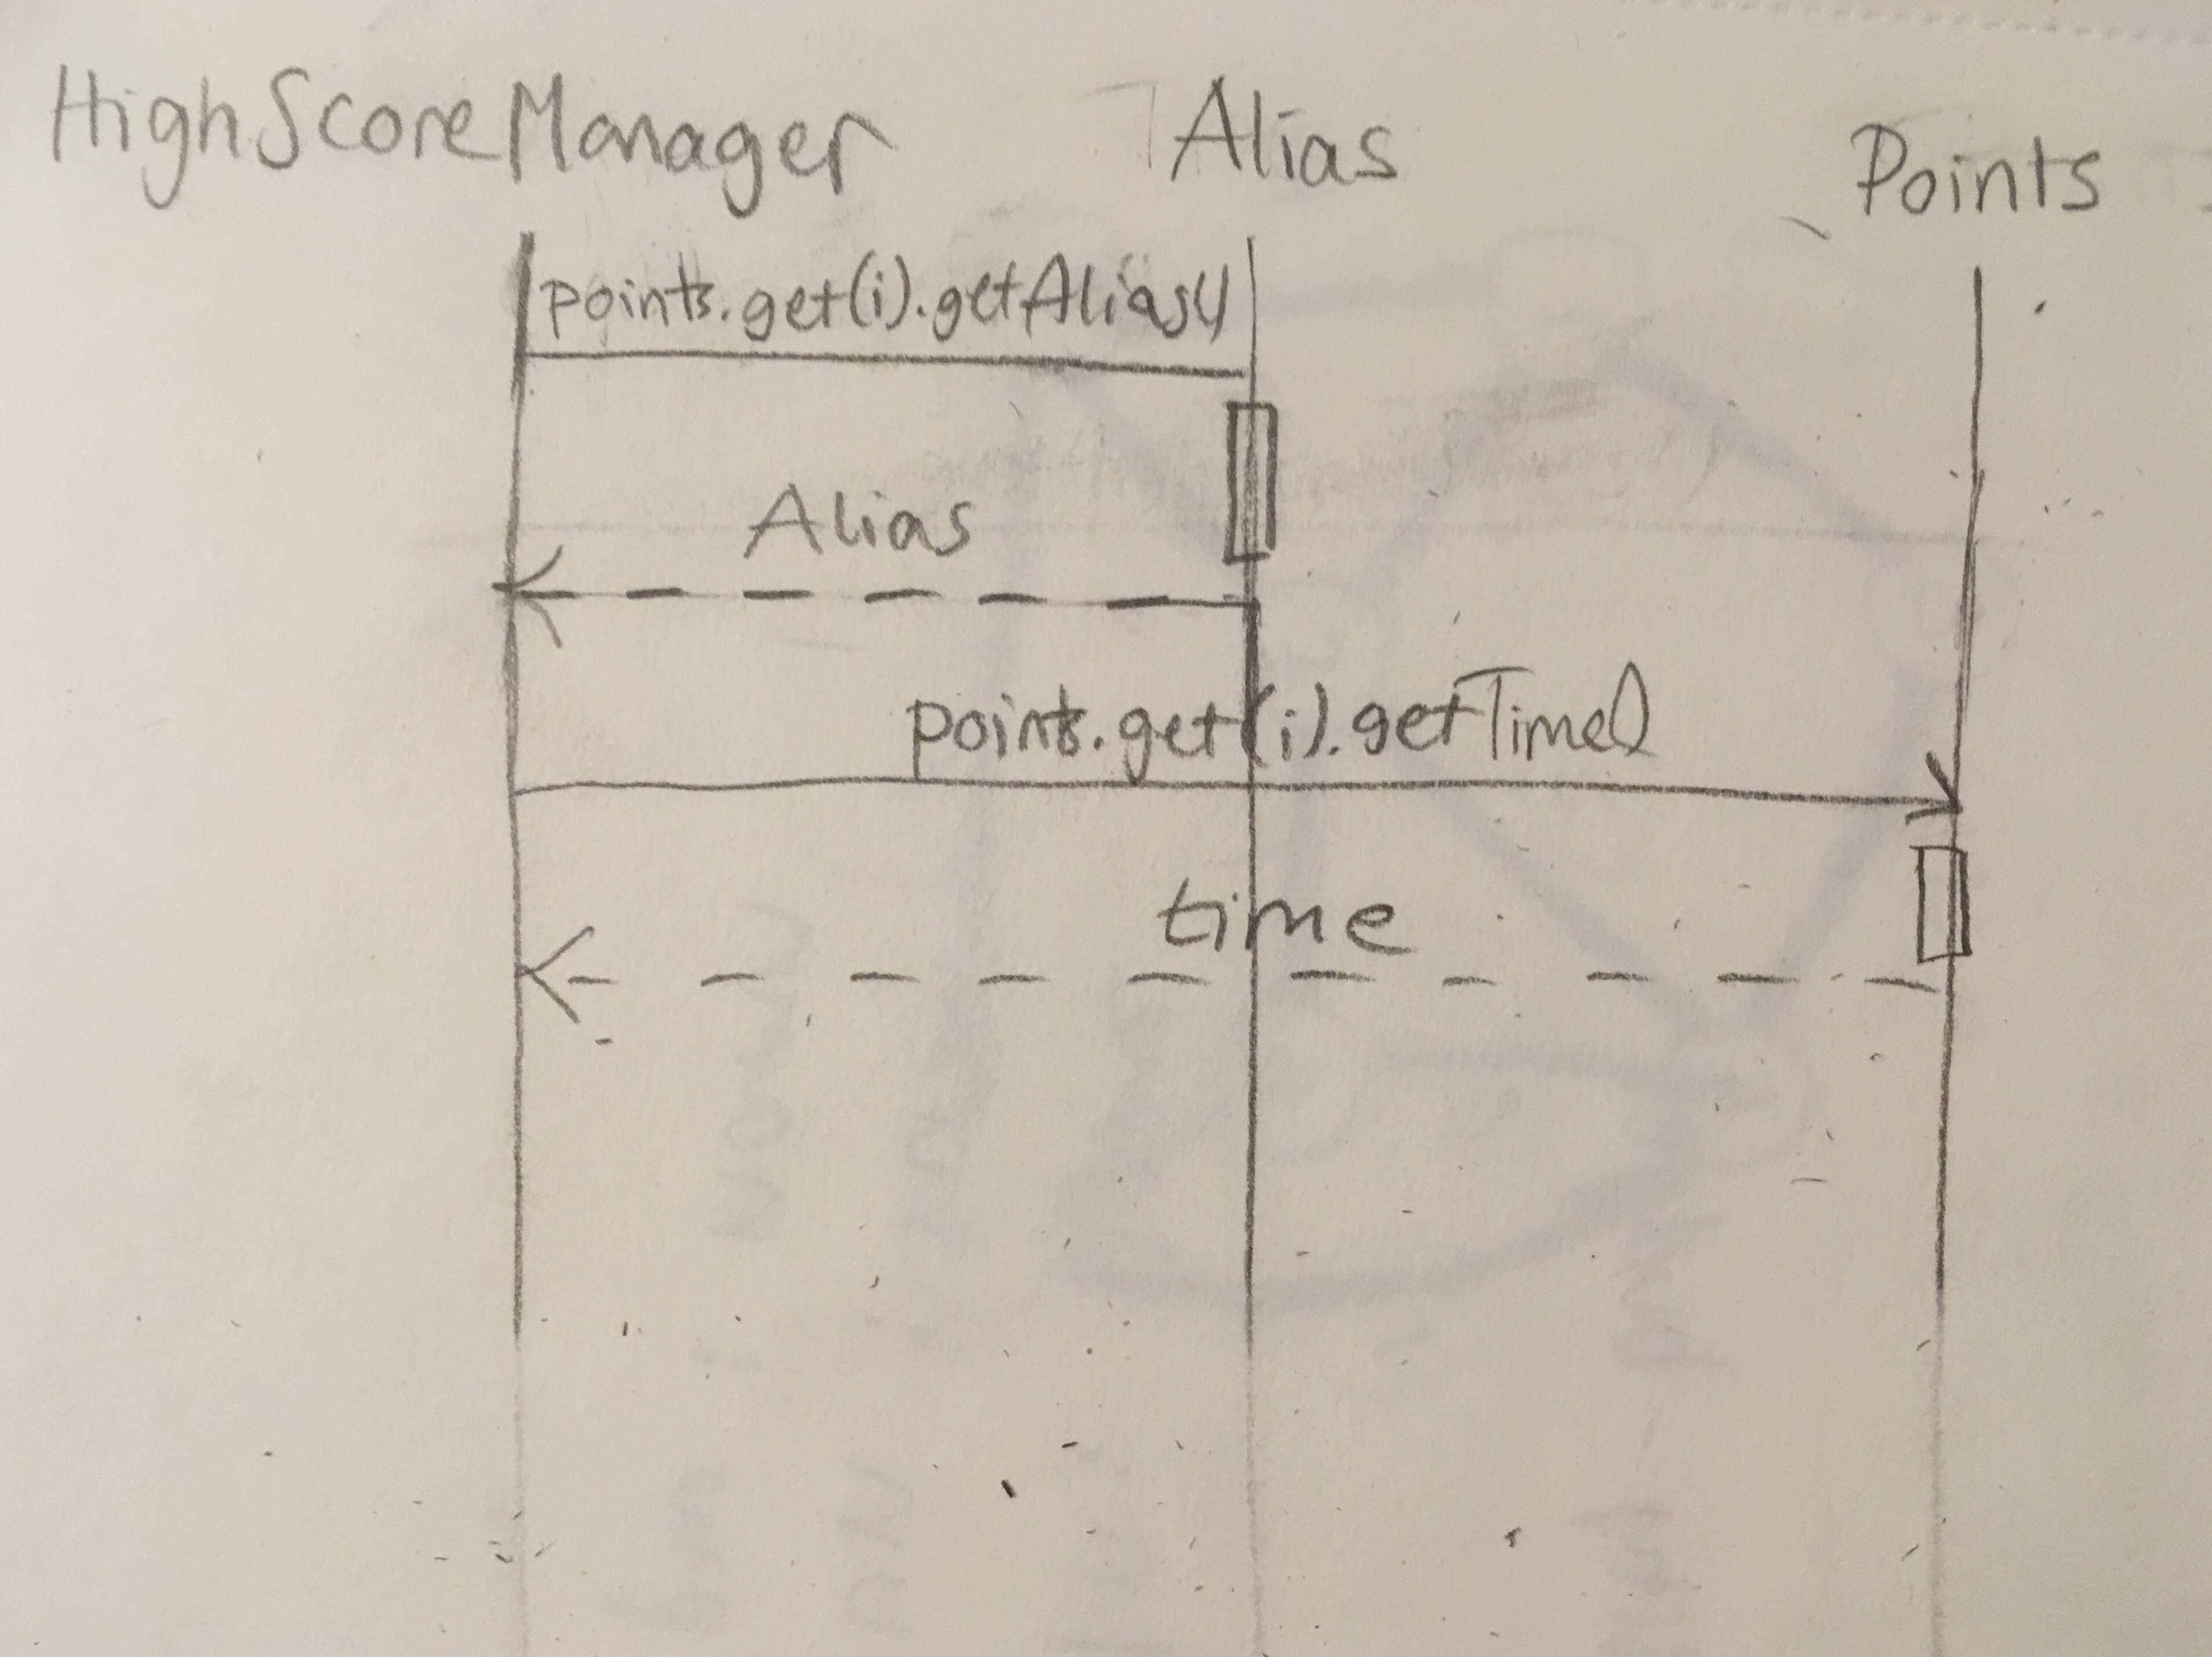 HighScoreManager Alias Points
points.get(i).getAlias()
Alias
points.get(i).getTime()
time